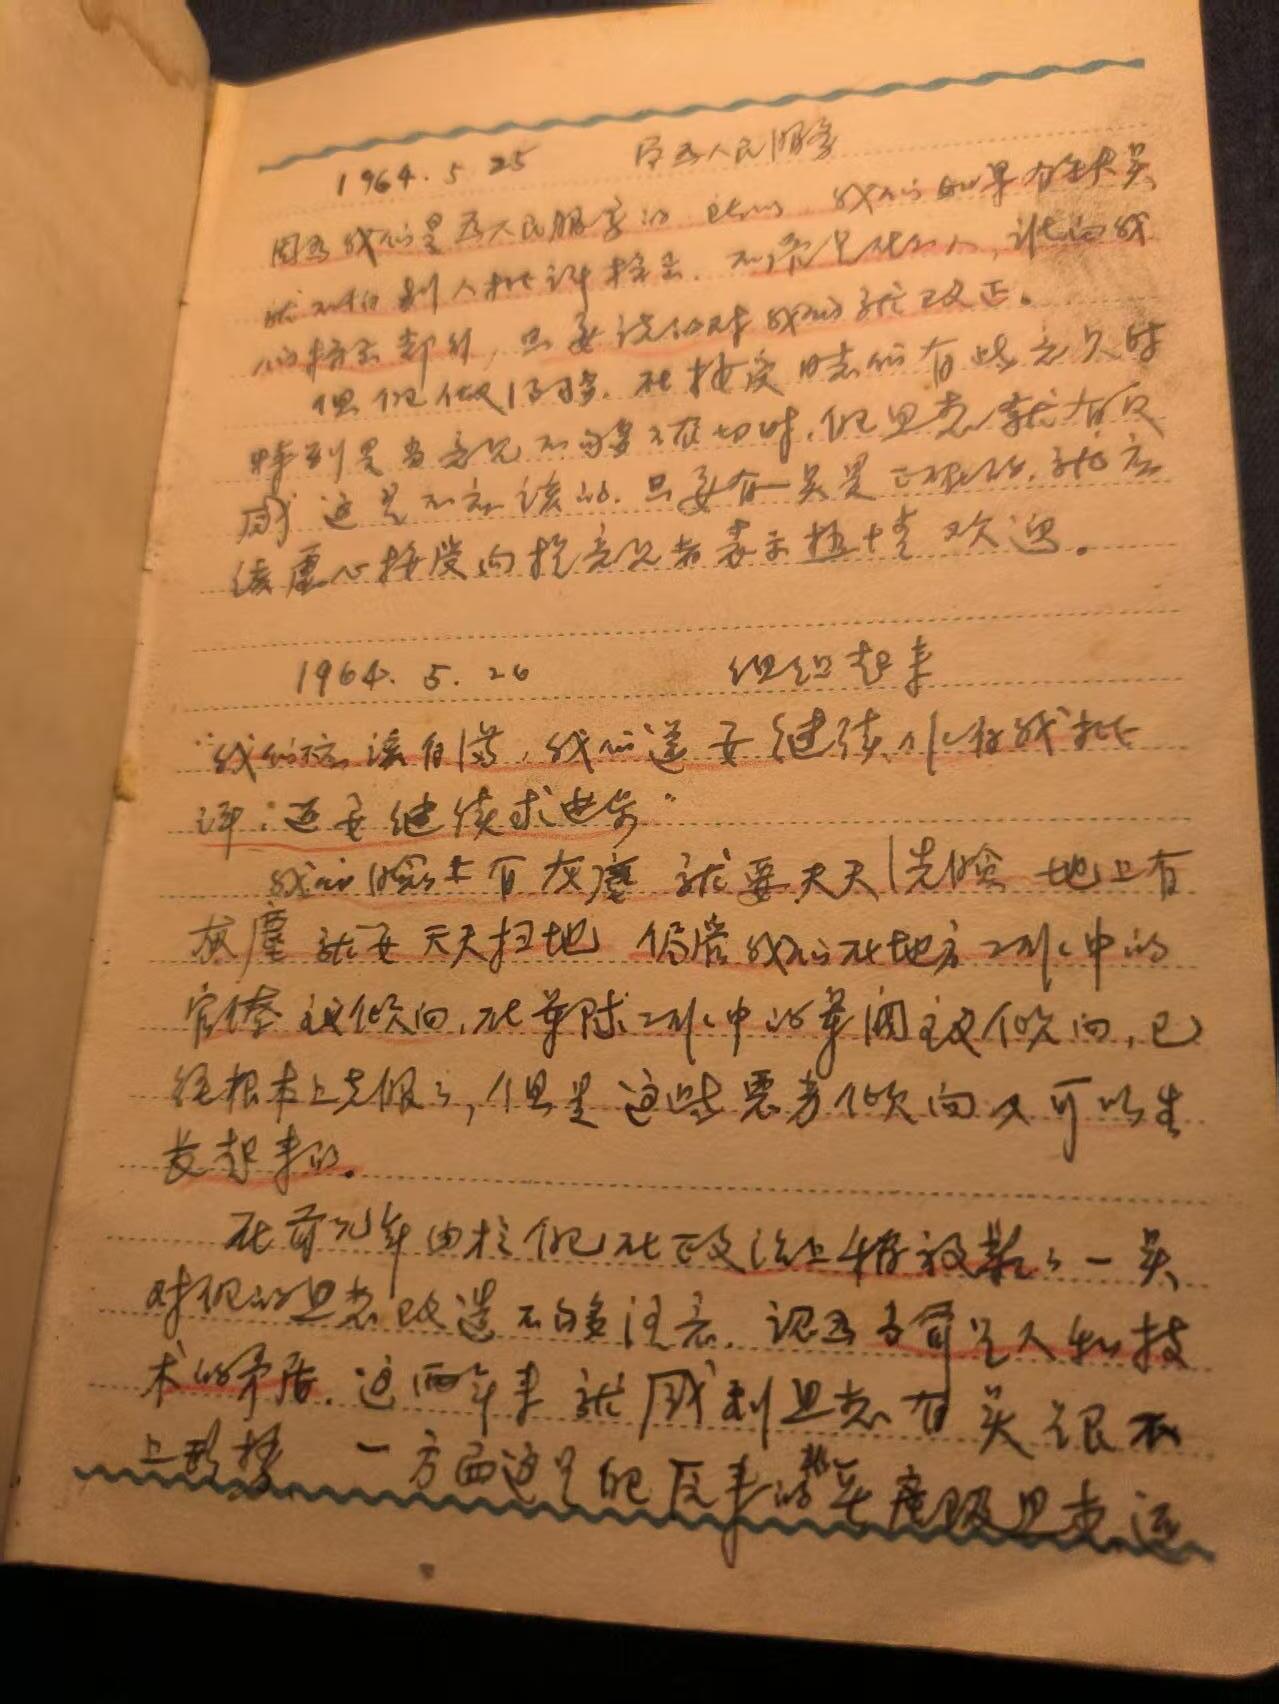 1964.5.25 为人民服务
因为我们是为人民服务的 所以 我们如果有缺点
就不怕别人批评指出. 不管是什么人, 谁向我
们指出都行, 只要说的对我们就改正.
但 做得 够. 在接受同志们有些意见时
特别是当意见不够确切时, 思想就有反
感 这是不应该的. 只要有一点是正确的, 就应
该虚心接受向提意见者表示热情欢迎.
1964.5.26 组织起来
"我们应该 , 我们还要继续 自我批
评; 还要继续求进步"
我们脸上有灰尘 就要天天洗脸 地上有
灰尘 就要天天扫地 尽管我们在地方工作中的
官僚主义倾向, 在军队工作中的军阀主义倾向, 已
经根本上克服了, 但是这些恶劣倾向又可以生
长起来的.
在前几年由于 在政治上稍放松了一点
对 的思想改造不够注意. 认为 当前是人和技
术的矛盾. 这两年来 就感到思想有点跟不
上形势 一方面这是 原来的 无产阶级思想